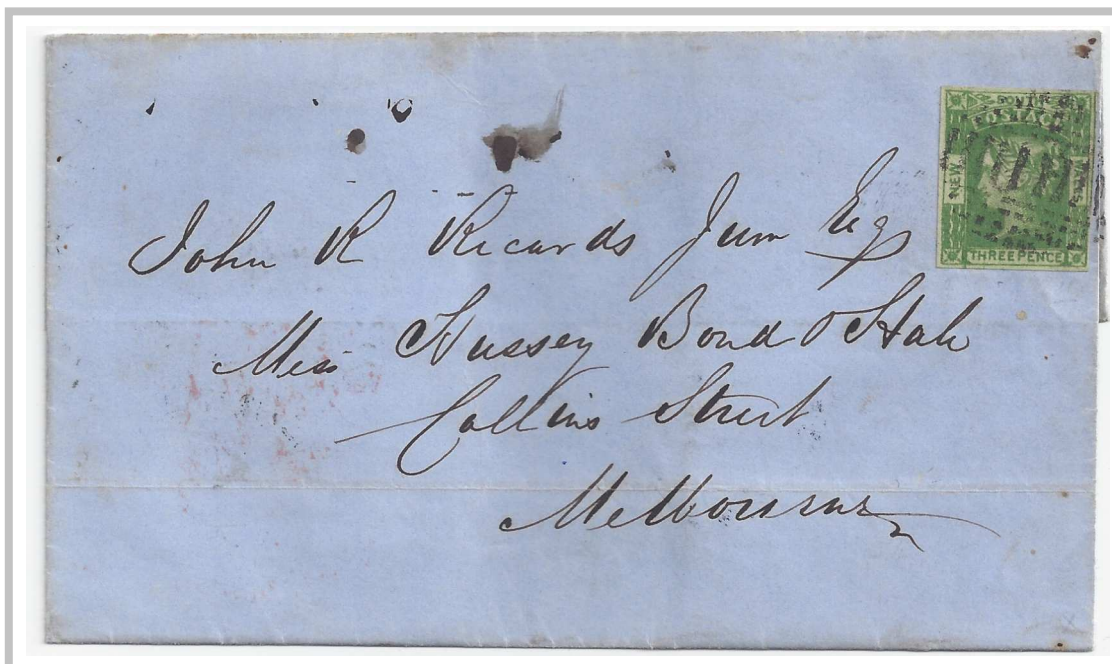 SOUTH
POSTAGE
NEW
THREE PENCE
John R Ricards Junr Esqr
Messrs Hussey Bond & Hale
Collins Street
Melbourne